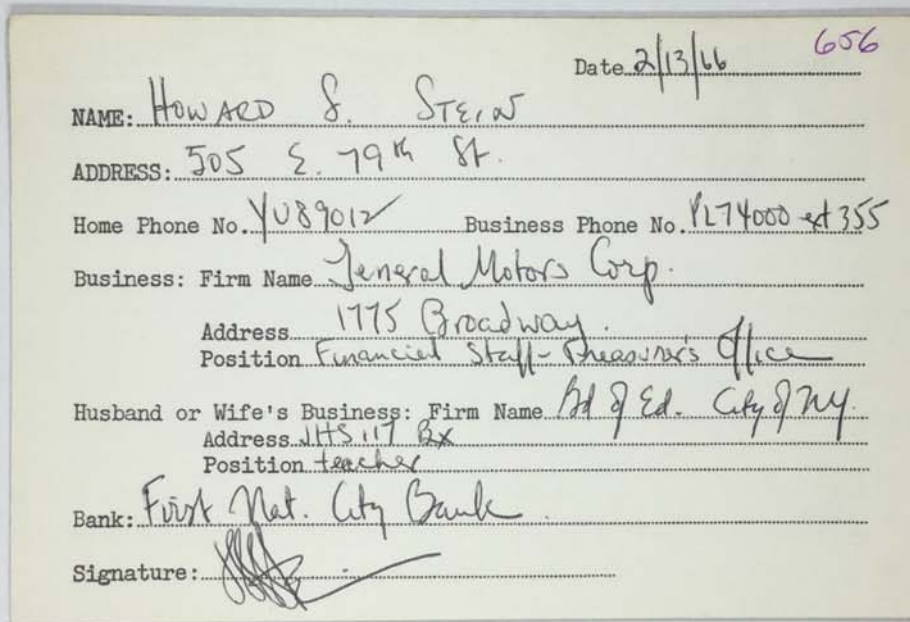 656
Date 2/13/66
NAME: HOWARD S. STEIN
ADDRESS: 505 E. 79th St.
Home Phone No. YU89012 Business Phone No. PL74000 ext 355
Business: Firm Name General Motors Corp.
Address 1775 Broadway.
Position Financial Staff-Treasurer's Office
Husband or Wife's Business: Firm Name Bd of Ed. City of NY.
Address JHS 117 Bx
Position teacher
Bank: First Nat. City Bank.
Signature: